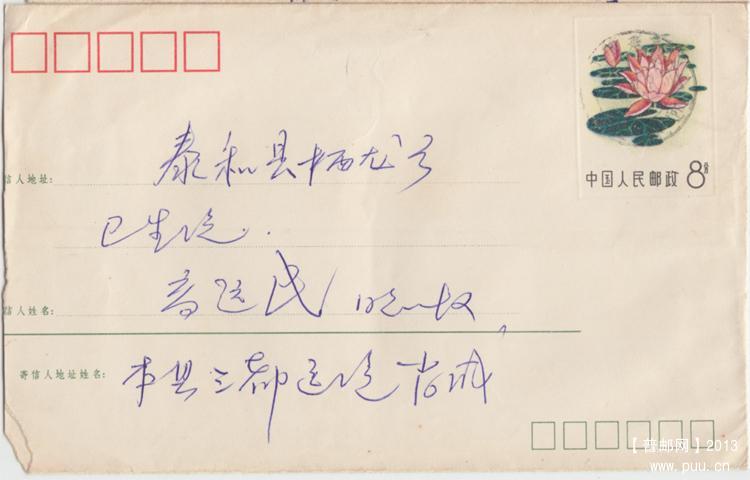 中国人民邮政 8分
信人地址: 泰和县栖龙
卫生院.
信人姓名: 高运民 收
寄信人地址姓名: 本县三都
【普邮网】2013
www.puu.cn